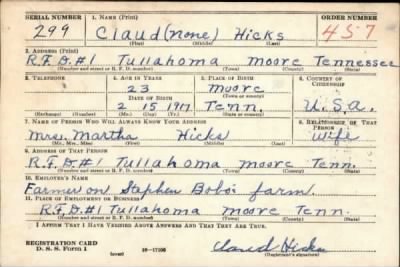 SERIAL NUMBER 1. NAME (Print) ORDER NUMBER
299 Claud (none) Hicks 457
(First) (Middle) (Last)
2. ADDRESS (Print)
R.F.D.#1 Tullahoma Moore Tennessee
(Number and street or R. F. D. number) (Town) (County) (State)
3. TELEPHONE 4. AGE IN YEARS 5. PLACE OF BIRTH 6. COUNTRY OF CITIZENSHIP
23 Moore
DATE OF BIRTH (Town or county)
2 15 1917 Tenn. U.S.A.
(Exchange) (Number) (Mo.) (Day) (Yr.) (State or country)
7. NAME OF PERSON WHO WILL ALWAYS KNOW YOUR ADDRESS 8. RELATIONSHIP OF THAT PERSON
Mrs. Martha Hicks Wife
(Mr., Mrs., Miss) (First) (Middle) (Last)
9. ADDRESS OF THAT PERSON
R.F.D.#1 Tullahoma Moore Tenn.
(Number and street or R. F. D. number) (Town) (County) (State)
10. EMPLOYER'S NAME
Farmer on Stephen Bobo's farm.
11. PLACE OF EMPLOYMENT OR BUSINESS
R.F.D.#1 Tullahoma Moore Tenn.
(Number and street or R. F. D. number) (Town) (County) (State)
I AFFIRM THAT I HAVE VERIFIED ABOVE ANSWERS AND THAT THEY ARE TRUE.
REGISTRATION CARD
D. S. S. Form 1 16-17105 Claud Hicks
(Registrant's signature)